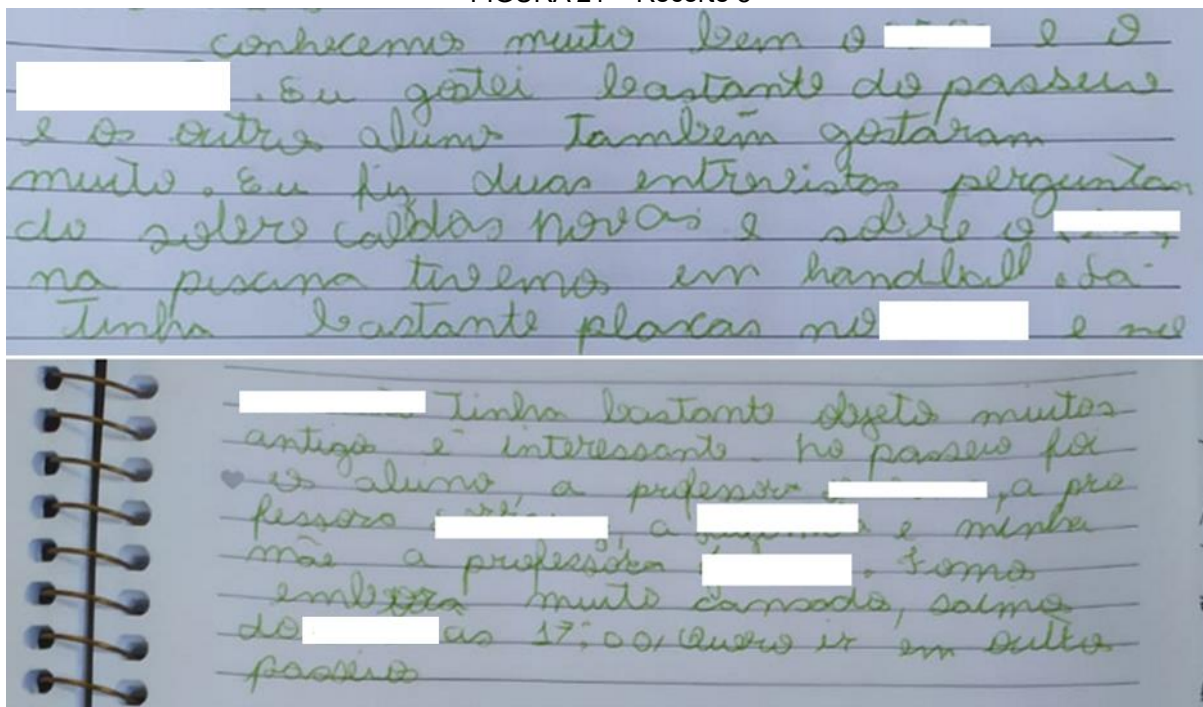 conhecemos muito bem o e o
. Eu gostei bastante do passeio
e os outros aluno também gostaram
muito. Eu fiz duas entrevistas perguntan
do sobre caldas novas e sobre o
na piscina tivemos em handball. La
Tinha bastante placas no e no
Tinha bastante objeto muitos
antigo e interessante. no passeio foi
os aluno, a professora , a pro
fessora , a e minha
mãe a professora . Fomos
embora muito cansado, saimo
do as 17:00, Quero ir em outro
passeio